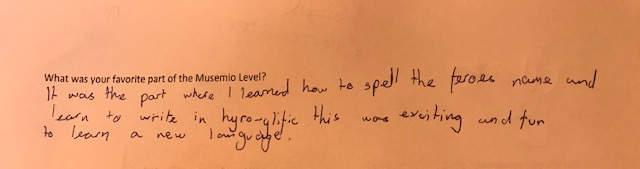 What was your favorite part of the Musemio Level?
It was the part where I learned how to spell the feroes name and
learn to write in hyro-glific this was exciting and fun
to learn a new language.